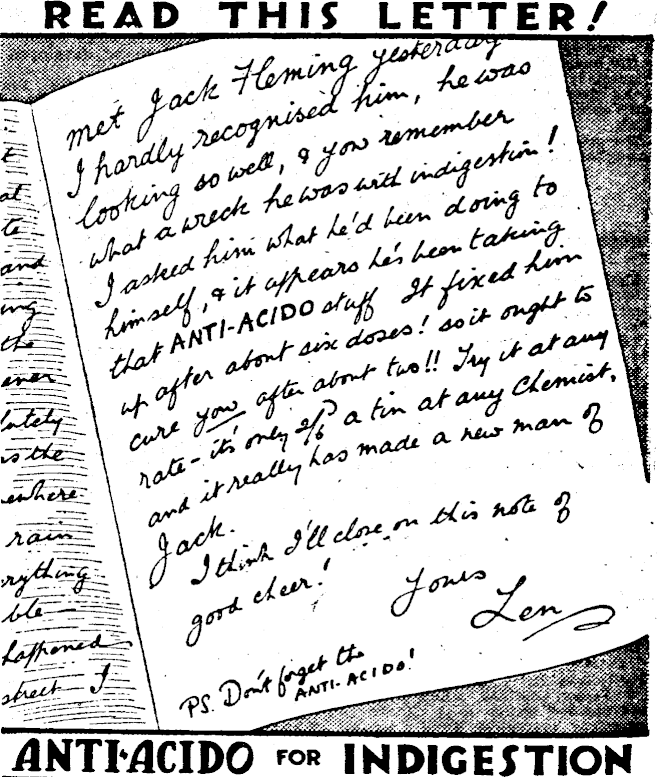 READ THIS LETTER!
t
at
te
and
ing
the
ever
lutely
is the
ewhere
rain
rything
ble
happened
street I
met Jack Fleming yesterday
I hardly recognised him, he was
looking so well, & you remember
what a wreck he was with indigestion!
I asked him what he'd been doing to
himself, & it appears he's been taking
that ANTI-ACIDO stuff It fixed him
up after about six doses! so it ought to
cure you after about two!! Try it at any
rate - it's only 2/6 a tin at any Chemist,
and it really has made a new man of
Jack.
I think I'll close on this note of
good cheer!
Yours
Len
PS. Don't forget the
ANTI-ACIDO!
ANTI-ACIDO FOR INDIGESTION